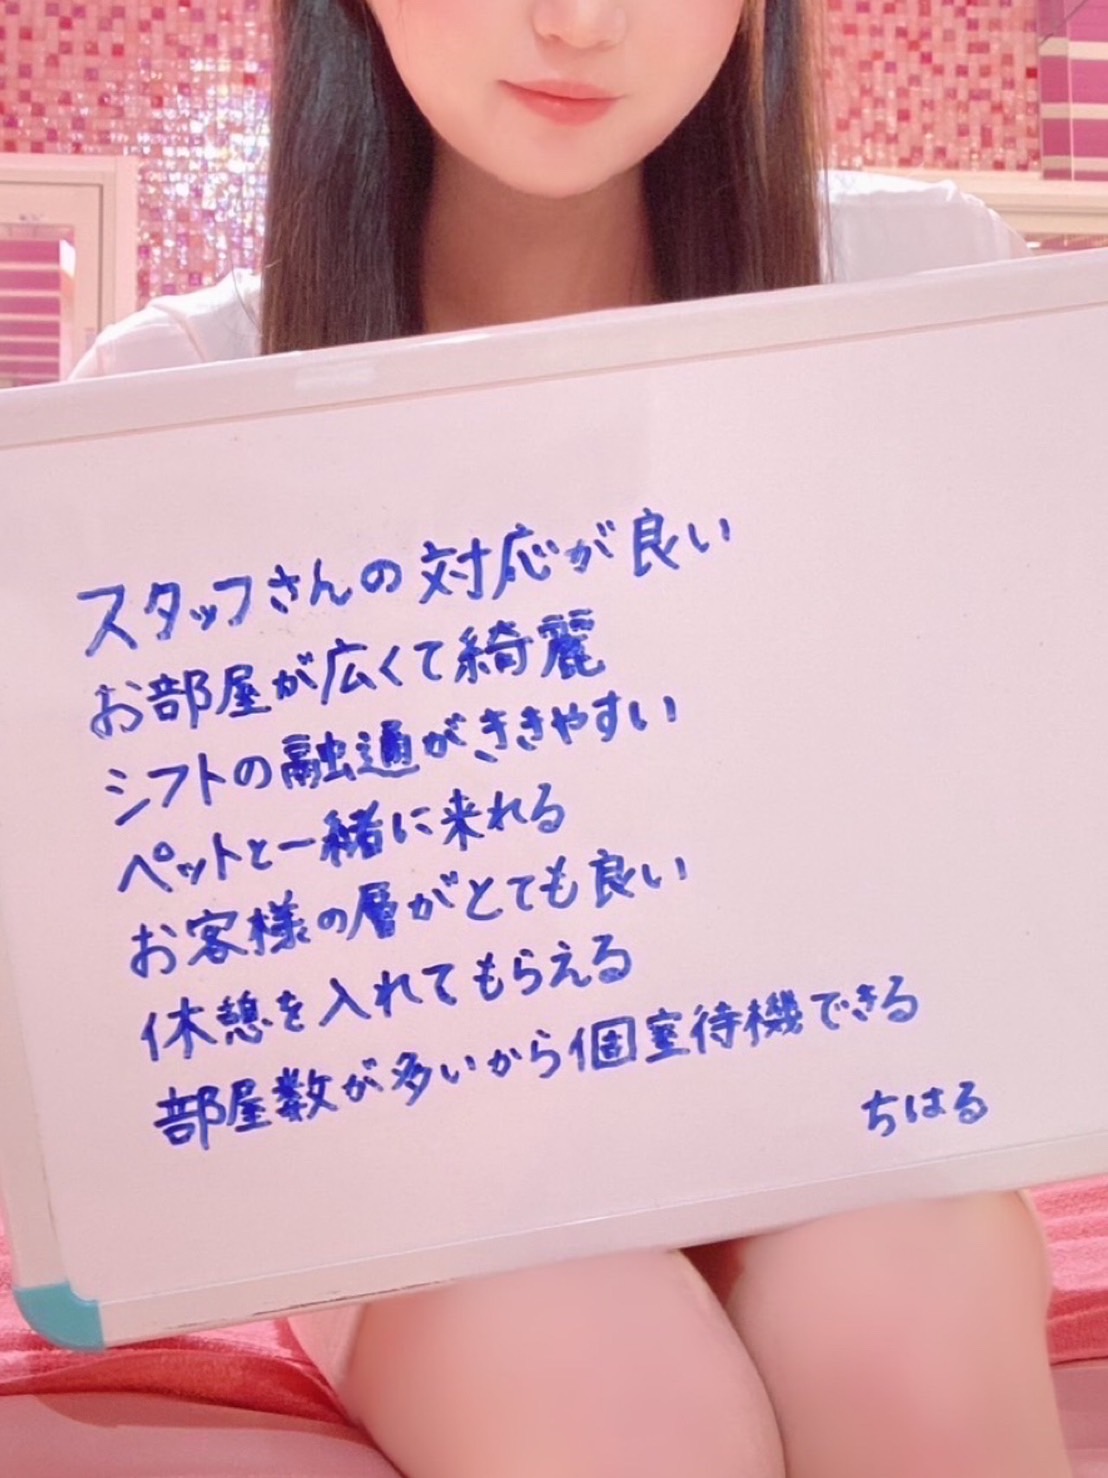 スタッフさんの対応が良い
お部屋が広くて綺麗
シフトの融通がききやすい
ペットと一緒に来れる
お客様の層がとても良い
休憩を入れてもらえる
部屋数が多いから個室待機できる
ちはる